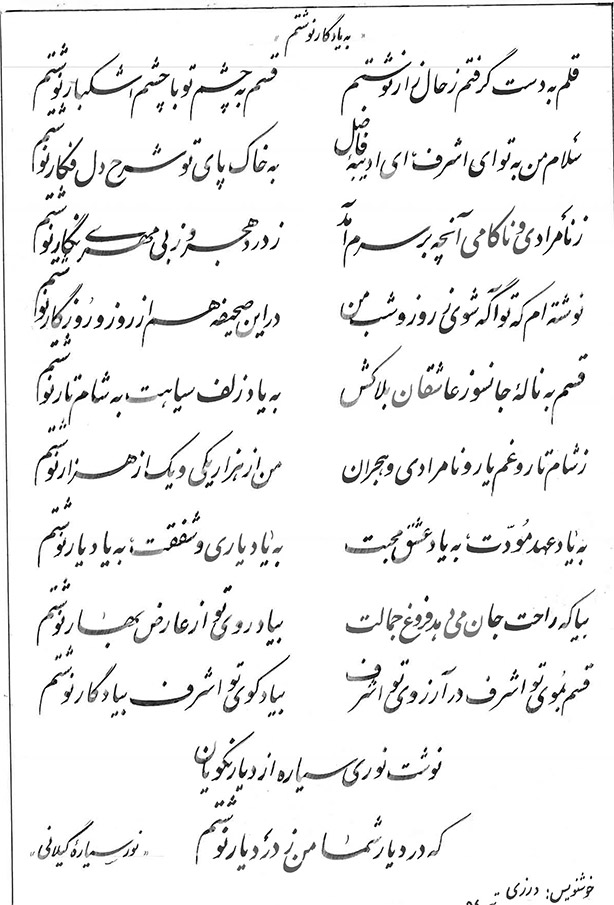 « به یادگار نوشتم »
قلم به دست گرفتم ز حال زار نوشتم قسم به چشم تو با چشم اشکبار نوشتم
سلام من به تو ای اشرف، ای ادیبهٔ فاضل به خاک پای تو شرح دل فکار نوشتم
ز نامرادی و ناکامی آنچه بر سرم آمد ز درد هجر و ز بی مهری نگار نوشتم
نوشته ام که تو آگه شوی ز روز و شب من در این صحیفه هم از روز و روزگار نوشتم
قسم به نالهٔ جانسوز عاشقان بلاکش به یاد زلف سیاهت، به شام تار نوشتم
ز شام تار و غم یار و نامرادی و هجران من از هزار یکی و یک از هزار نوشتم
به یاد عهد مودّت، به یاد عشق و محبت به یاد یاری و شفقت، به یاد یار نوشتم
بیا که راحت جان می دهد فروغ جمالت بیاد روی تو از عارض بهار نوشتم
قسم بموی تو اشرف در آرزوی تو اشرف بیاد کوی تو اشرف بیادگار نوشتم
نوشت نوری سیاره از دیار نکویان
که در دیار شما من ز درد یار نوشتم
« نور سیارهٔ گیلانی »
خوشنویس: درزی